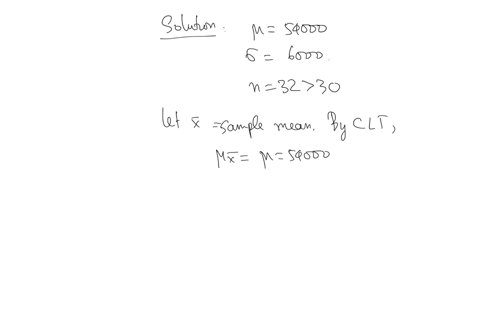 Solution: μ = 54000
σ = 6000.
n = 32 > 30
let x̄ = sample mean. By CLT,
μx̄ = μ = 54000